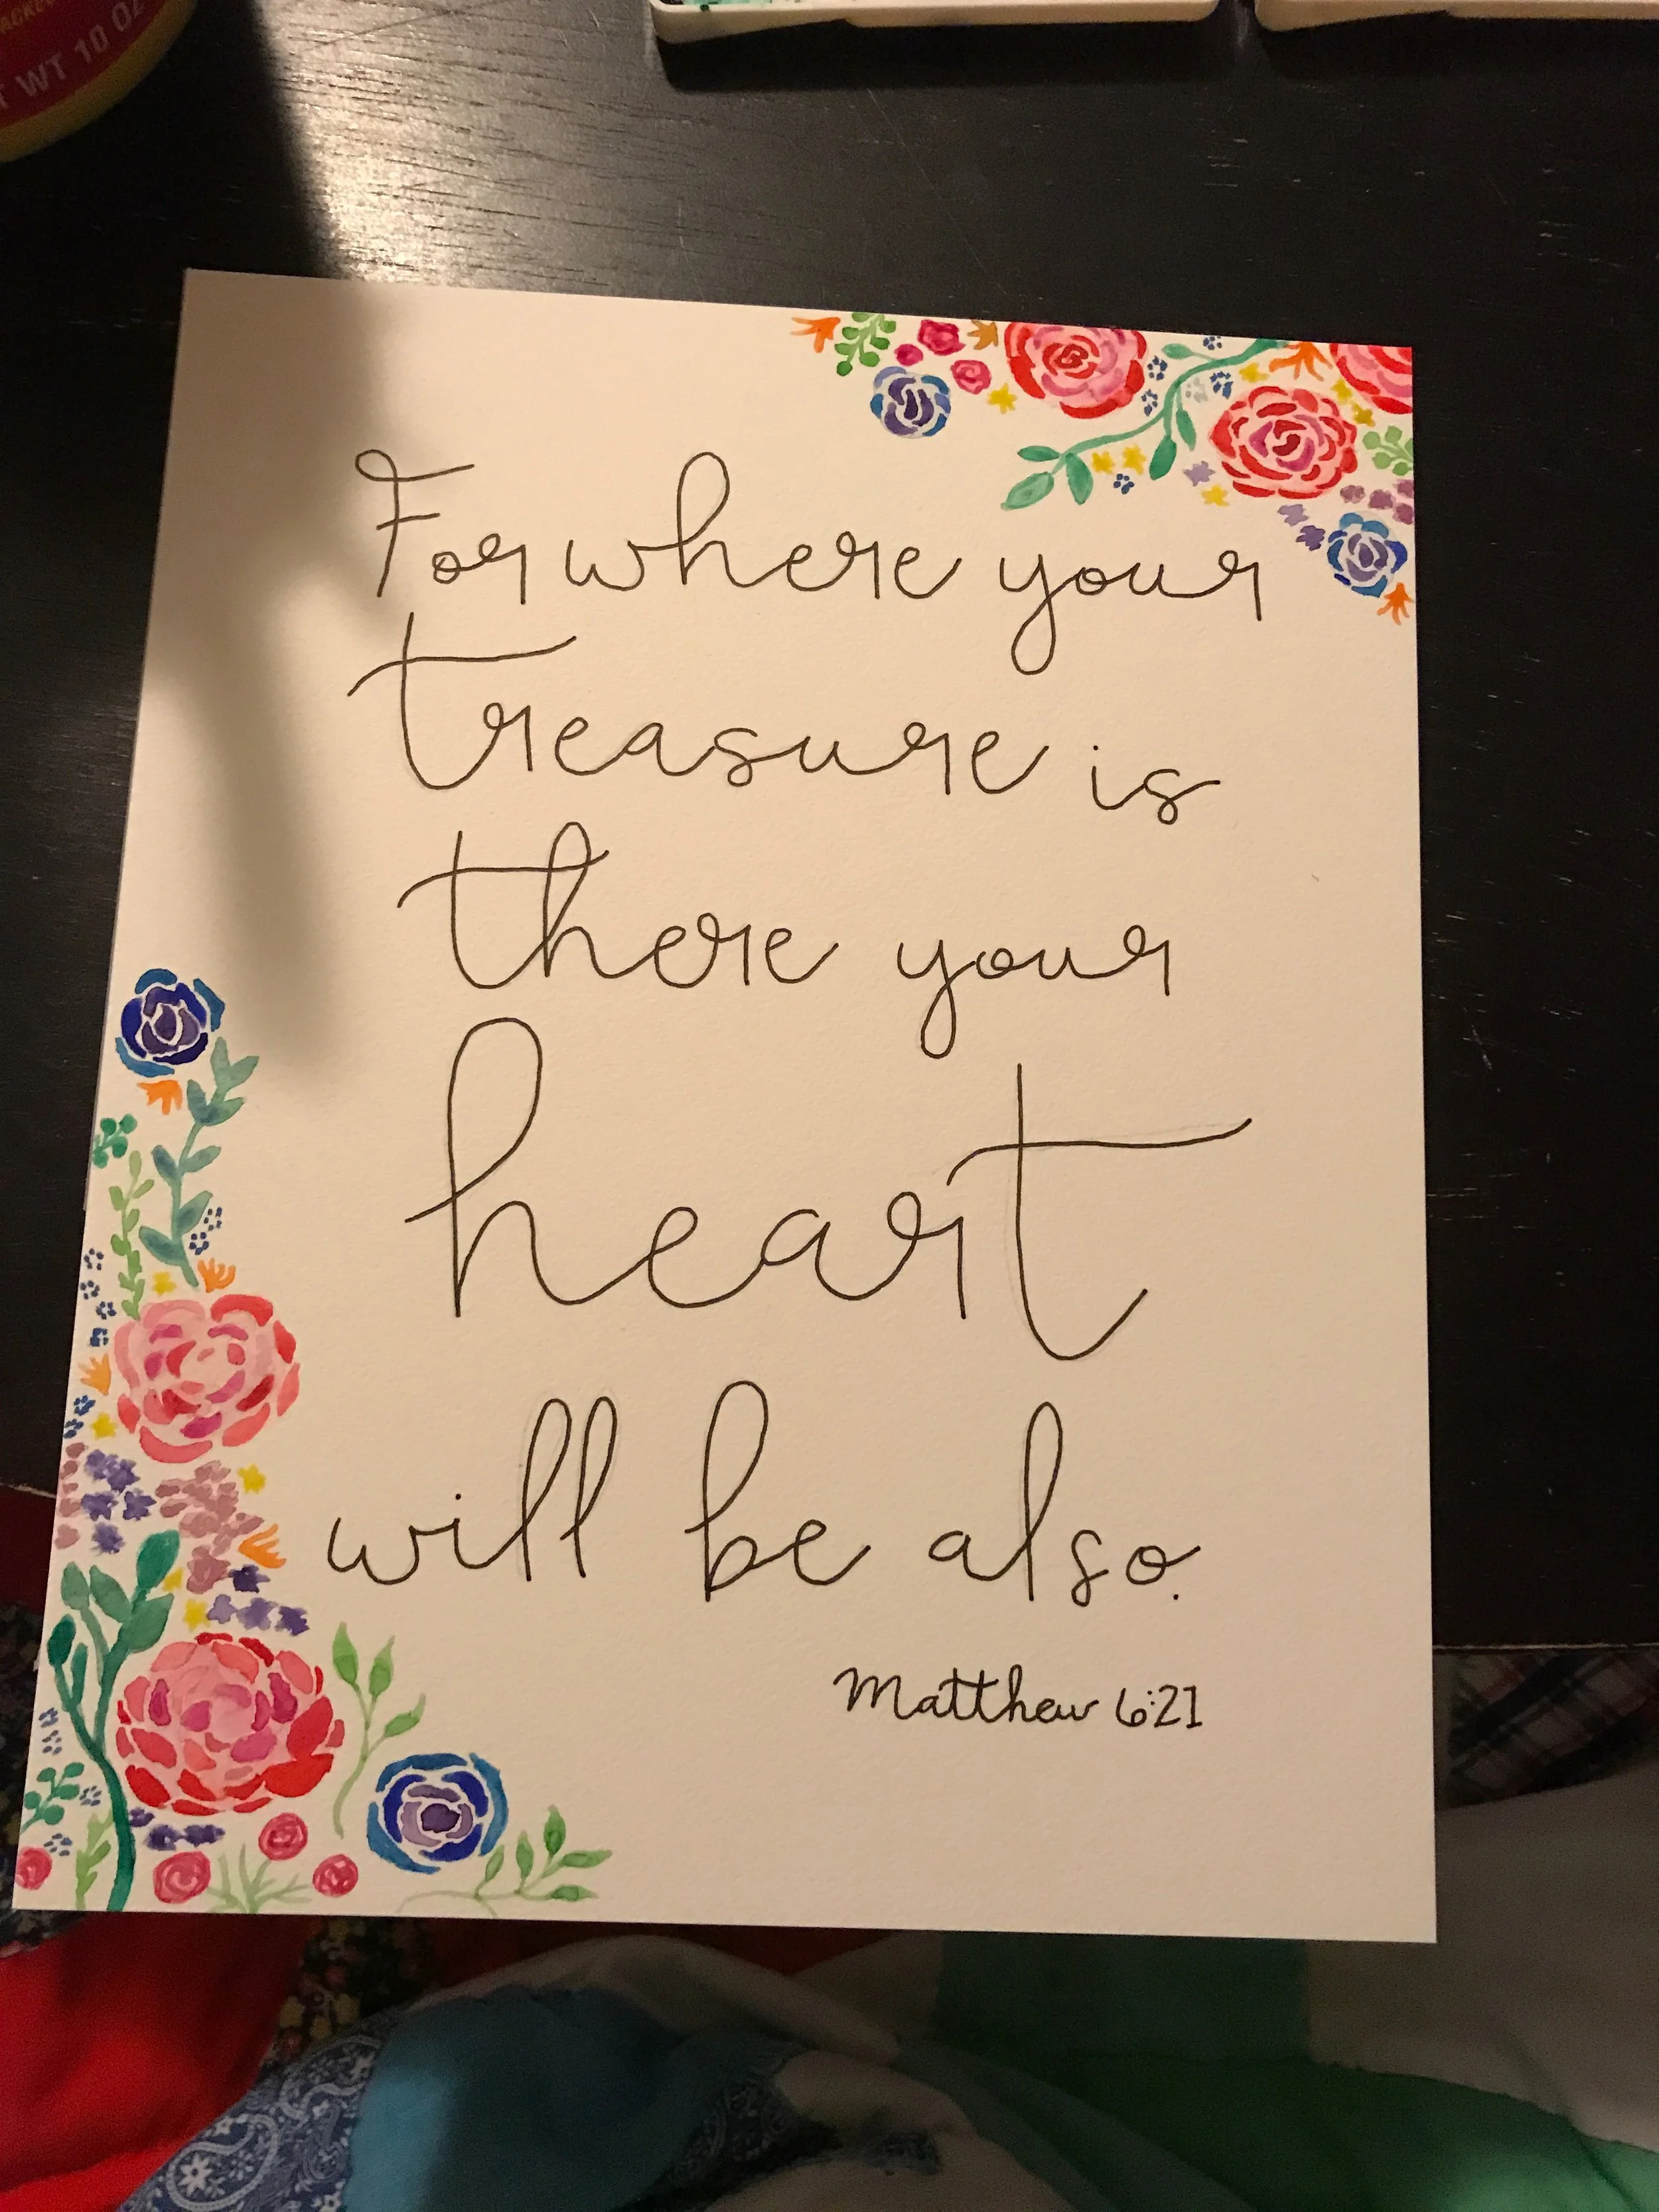 ACKED
T WT 10 OZ
For where your
treasure is
there your
heart
will be also.
Matthew 6:21